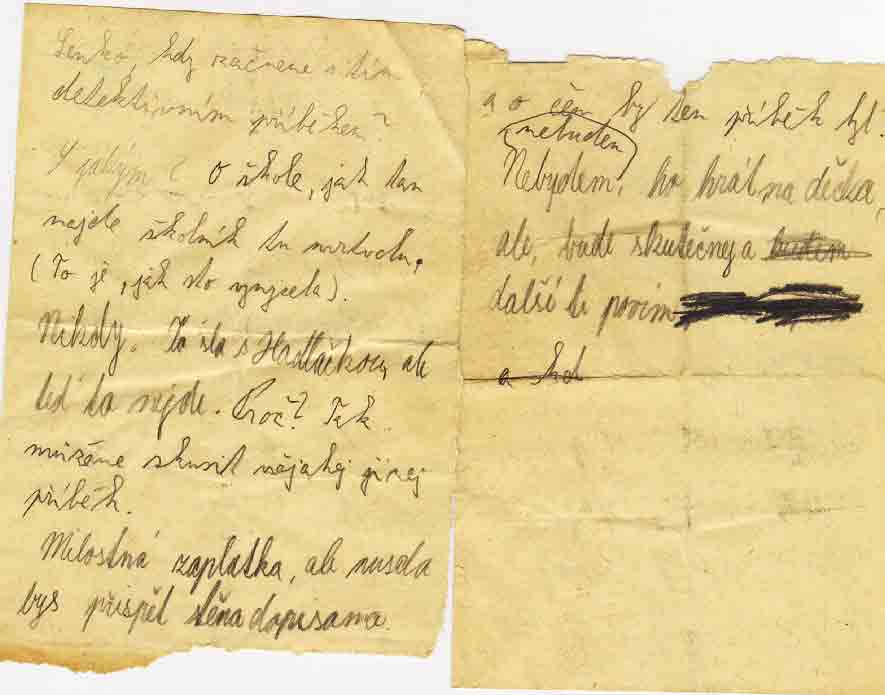 Lenko, kdy začneme s tím
detektivním příběhem?
S jakým? O škole, jak tam
najde školník tu mrtvolu.
(To je, jak sto vymysela).
Nikdy. To šlo s Hadláčkou, ale
teď to nejde. Proč? Tak
můžeme skusit nějakej jinej
příběh.
Milostná zaplatka, ale musela
bys přispět těma dopisama.
a o čem by ten příběh byl.
nebudem
Nebydem, ho hrát na děcka,
ale, bude skutečnej a budem
další ti povím
a kd